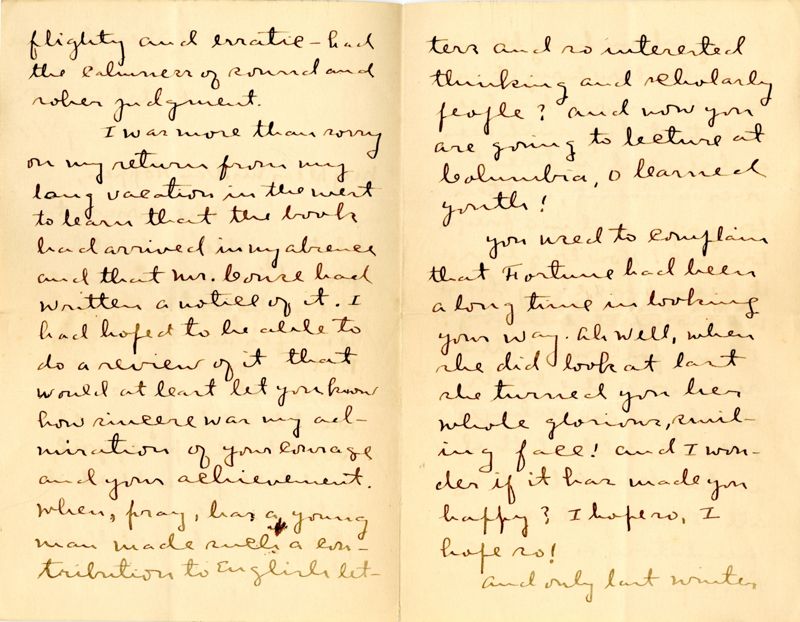 flighty and erratic – had
the calmness of sound and
sober judgment.
I was more than sorry
on my return from my
long vacation in the west
to learn that the book
had arrived in my absence
and that Mr. Couse had
written a notice of it. I
had hoped to be able to
do a review of it that
would at least let you know
how sincere was my ad-
miration of your courage
and your achievement.
When, pray, has a young
man made such a con-
tribution to English let-
ters and so interested
thinking and scholarly
people? And now you
are going to lecture at
Columbia, O learned
youth!
You used to complain
that Fortune had been
a long time in looking
your way. Ah well, when
she did look at last
she turned you her
whole glorious, smil-
ing face! And I won-
der if it has made you
happy? I hope so, I
hope so!
And only last winter